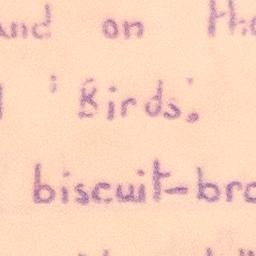 and on the
'Birds'.
biscuit-bro